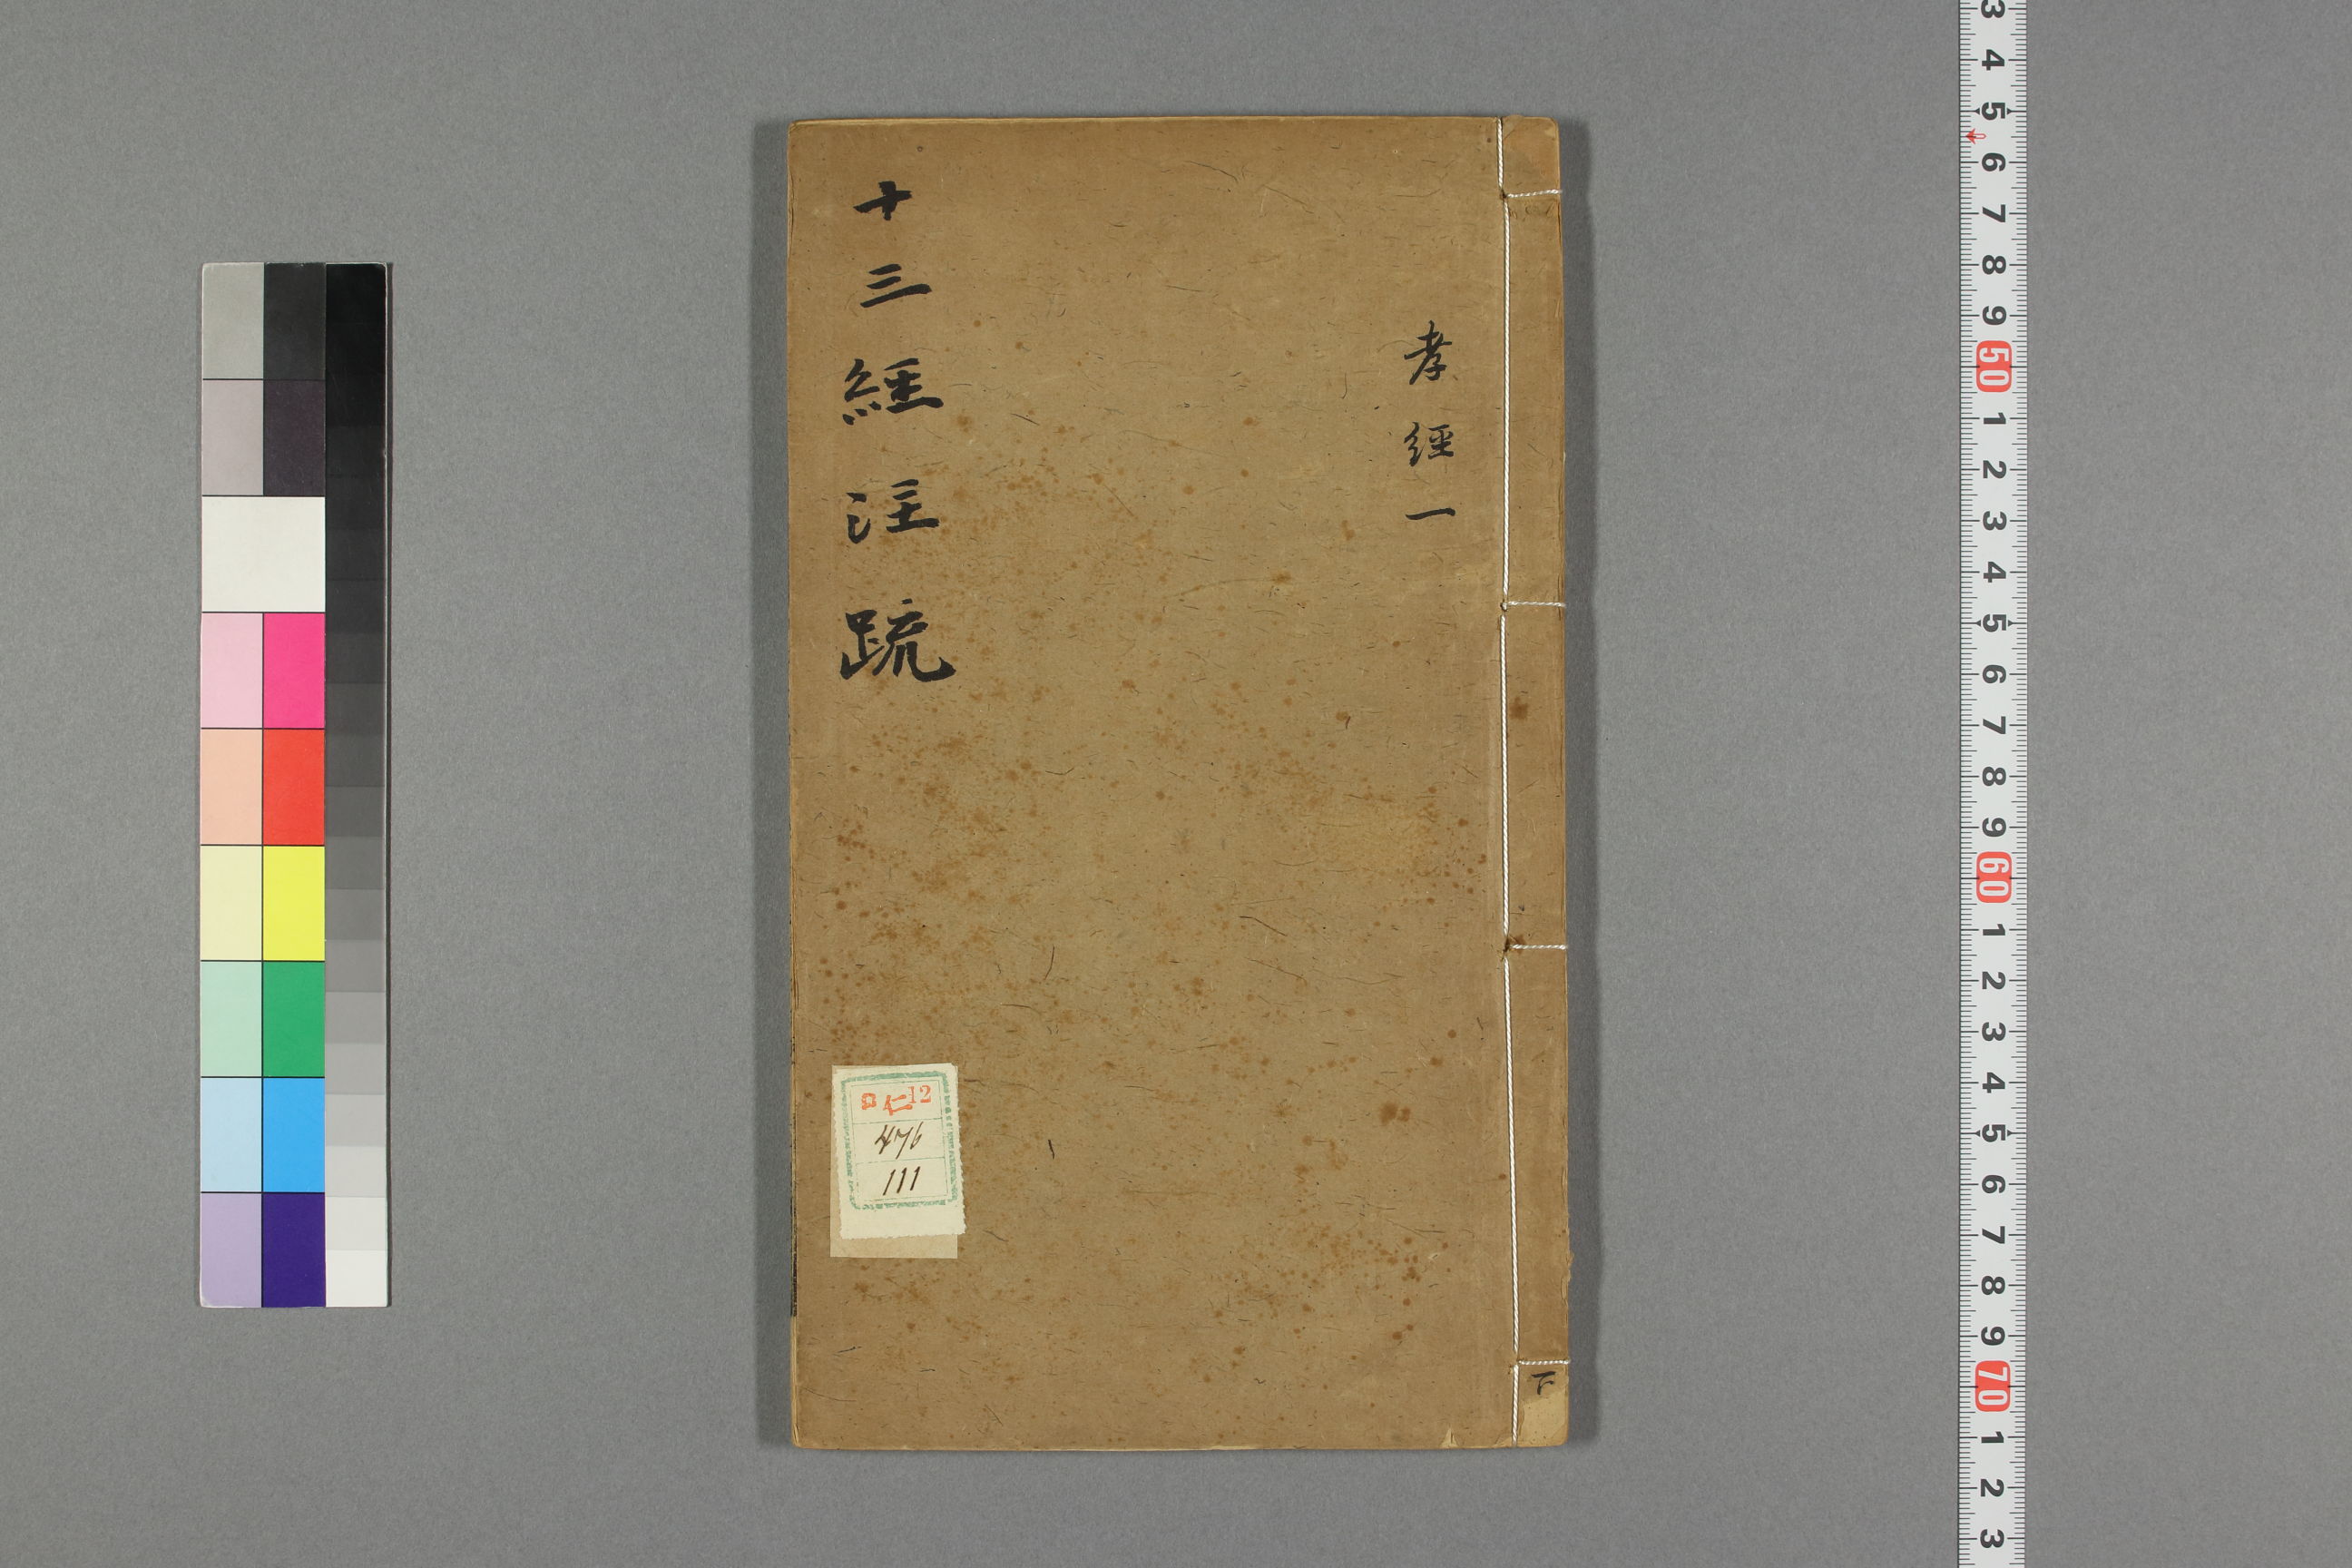 孝經一
十三經注疏
ロ仁12
476
111
下
3
4
5
6
7
8
9
50
1
2
3
4
5
6
7
8
9
60
1
2
3
4
5
6
7
8
9
70
1
2
3